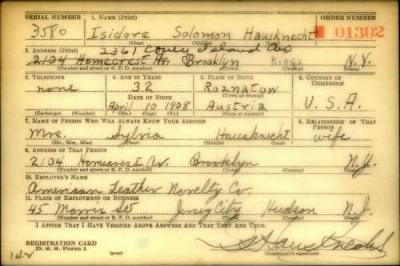 SERIAL NUMBER 1. NAME (Print) ORDER NUMBER
3580 Isidore Solomon Hausknecht 01302
(First) (Middle) (Last)
2361 Coney Island Av
2. ADDRESS (Print)
2104 Homecrest Av Brooklyn Kings N.Y.
(Number and street or R. F. D. number) (Town) (County) (State)
3. TELEPHONE 4. AGE IN YEARS 5. PLACE OF BIRTH 6. COUNTRY OF CITIZENSHIP
none 32 Roznatow
DATE OF BIRTH (Town or county)
April 10 1908 Austria U.S.A.
(Exchange) (Number) (Mo.) (Day) (Yr.) (State or country)
7. NAME OF PERSON WHO WILL ALWAYS KNOW YOUR ADDRESS 8. RELATIONSHIP OF THAT PERSON
Mrs. Sylvia Hausknecht wife
(Mr., Mrs., Miss) (First) (Middle) (Last)
9. ADDRESS OF THAT PERSON
2104 Homecrest Av. Brooklyn N.Y.
(Number and street or R. F. D. number) (Town) (County) (State)
10. EMPLOYER'S NAME
American Leather Novelty Co
11. PLACE OF EMPLOYMENT OR BUSINESS
45 Morris St Jersey City Hudson N.J.
(Number and street or R. F. D. number) (Town) (County) (State)
I AFFIRM THAT I HAVE VERIFIED ABOVE ANSWERS AND THAT THEY ARE TRUE.
REGISTRATION CARD
D. S. S. Form 1
(Registrant's signature)